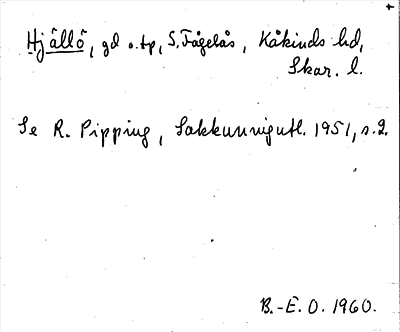 Hjällö, gd o. tp, S. Fågelås, Kåkinds hd,
Skar. l.
Se R. Pipping, Sakkunnigutl. 1951, s. 2.
B.-E. O. 1960.